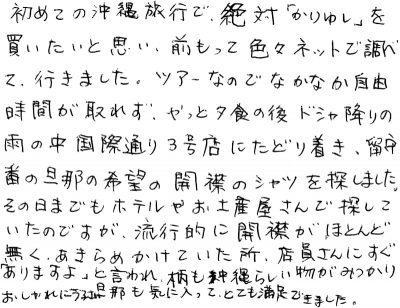 初めての沖縄旅行で、絶対「かりゆし」を
買いたいと思い、前もって色々ネットで調べ
て、行きました。ツアーなのでなかなか自由
時間が取れず、やっと夕食の後ドシャ降りの
雨の中国際通り3号店にたどり着き、留守
番の旦那の希望の開襟のシャツを探しました。
その日までもホテルやお土産屋さんで探して
いたのですが、流行的に開襟がほとんど
無く、あきらめかけていた所、店員さんにすぐ
「ありますよ」と言われ、柄も沖縄らしい物がみつかり
おしゃれにうるさい旦那も気に入って、とても満足できました。